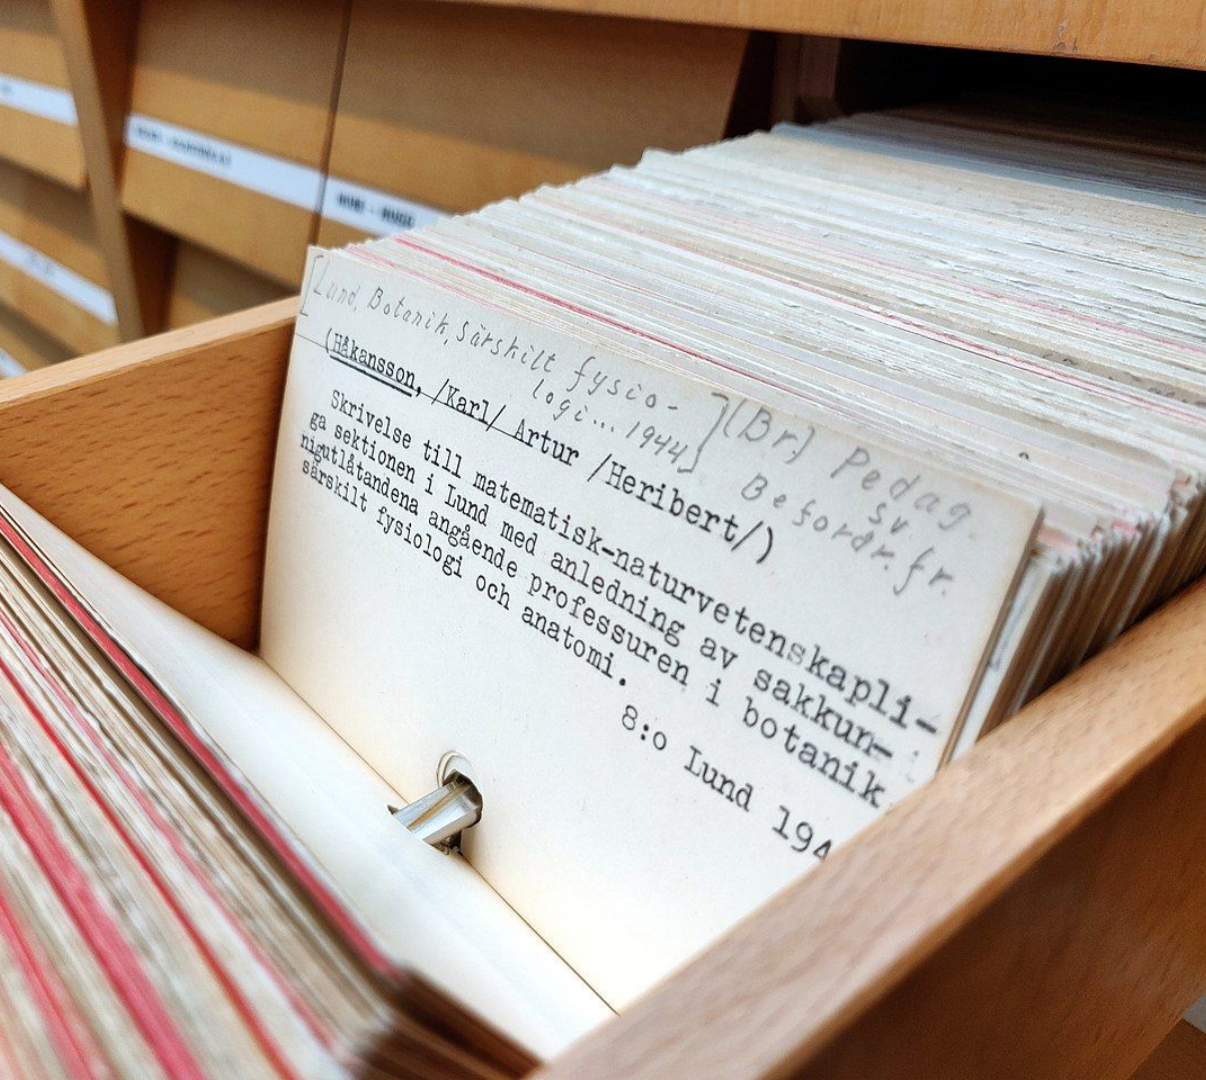 [Lund, Botanik, särskilt fysio-
logi... 1944]
(Br.) Pedag.
sv.
Befordr. fr.
(Håkansson, /Karl/ Artur /Heribert/)
Skrivelse till matematisk-naturvetenskapli-
ga sektionen i Lund med anledning av sakkun-
nigutlåtandena angående professuren i botanik
särskilt fysiologi och anatomi.
8:o Lund 194